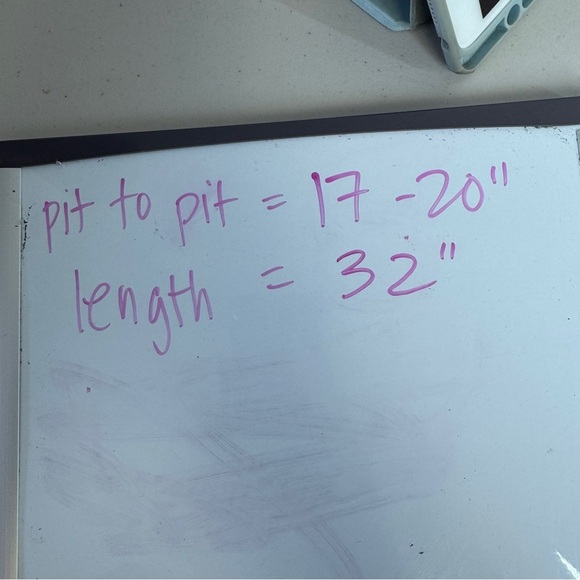 pit to pit = 17 - 20"
length = 32"